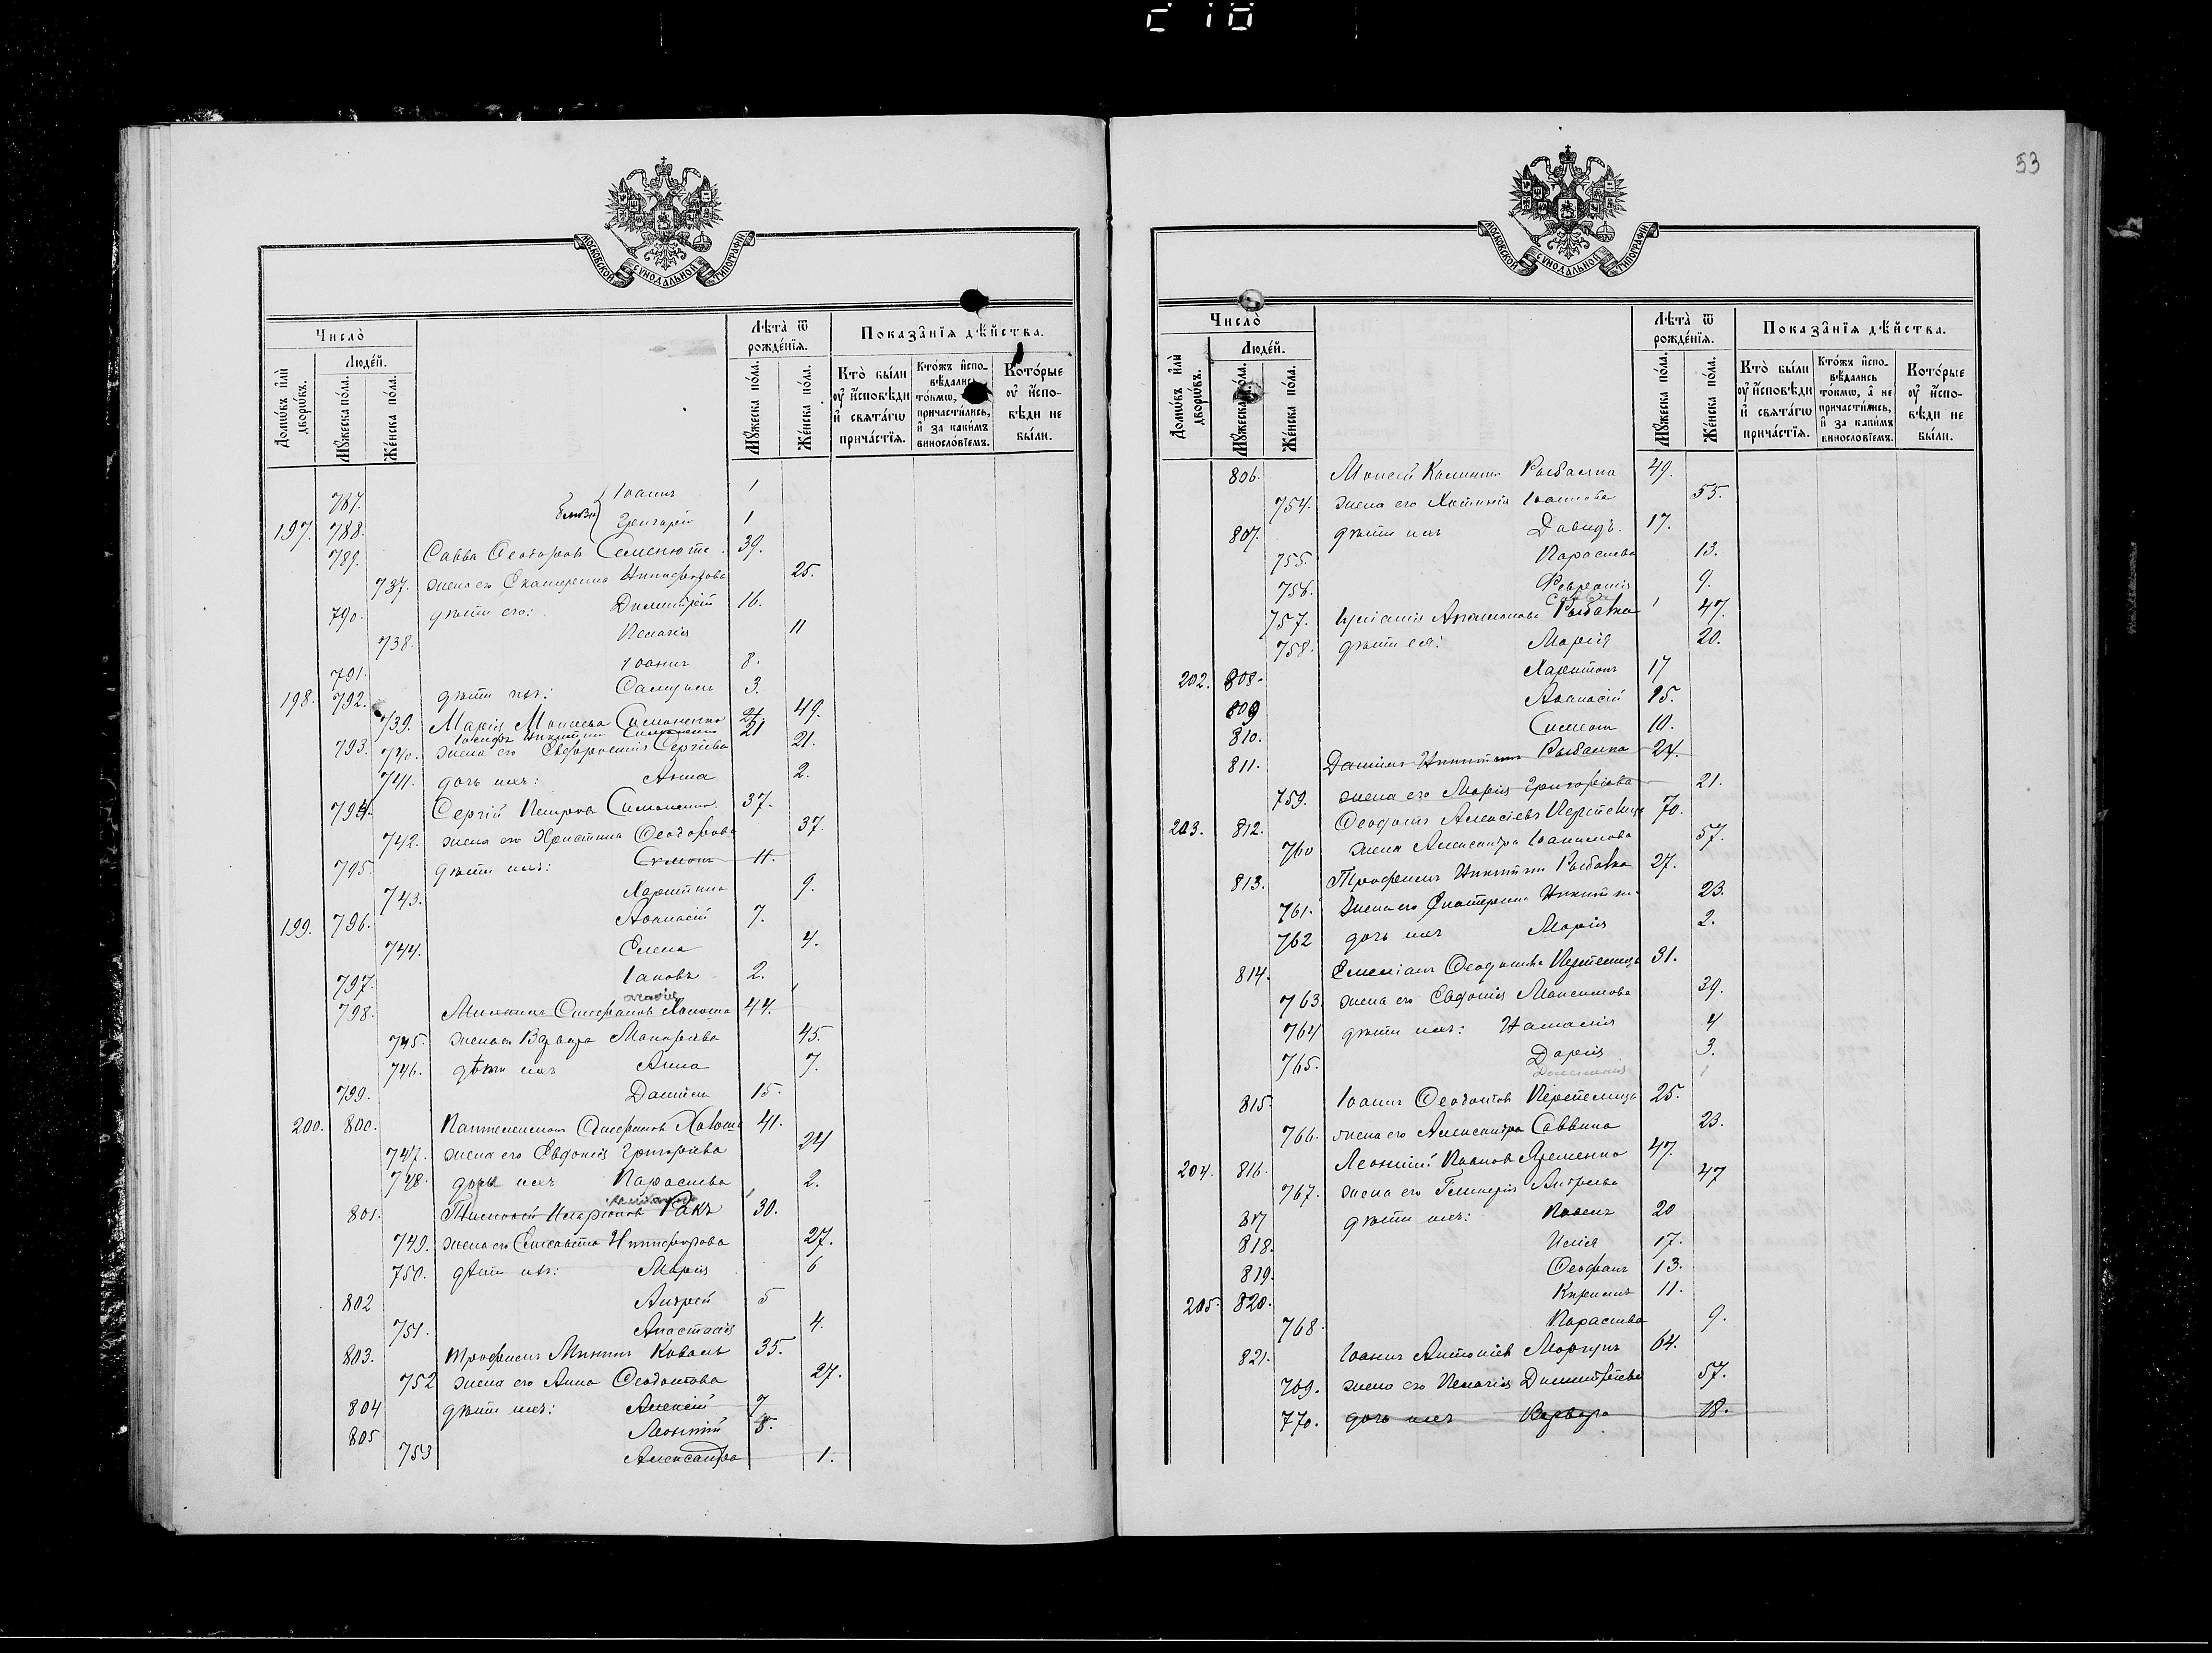 53
МОСКОВСКОЙ СѴНОДАЛЬНОЙ ТИПОГРАФІИ
Число̀
Людéй.
Домѡ́въ и҆лѝ дворѡ́въ.
Мꙋ́жеска по́ла.
Же́нска по́ла.
Лѣ́та ѿ рожде́нїѧ.
Мꙋ́жеска по́ла.
Же́нска по́ла.
Показа̂нїѧ дѣ́йства.
Кто̀ бы́ли оу҆ и҆сповѣ́ди и҆ свѧта́гѡ прича́стїѧ.
Кто́жъ и҆сповѣ́дались то́кмѡ, причасти́лись, и҆ за каки́мъ виносло́вїемъ.
Кото́рые оу҆ и҆сповѣ́ди не бы́ли.
787. Іоаннъ 1
197. 788. Григорій 1
789. Савва Ѳеодоровъ 39.
737. жена его Екатерина Никифорова 25.
790. дѣти его: Димитрій 16.
738. Пелагія 11
791. Іоаннъ 8.
198. 792. дѣти ихъ: Самуилъ 3.
739. Марія Моисеева Симоненко 49.
793. 21
740. жена его Евфросинія Сергіева 21.
741. дочь ихъ: Анна 2.
794. Сергій Петровъ Симоненко 37.
742. жена его Христина Ѳеодорова 37.
795. дѣти ихъ: Симонъ 11.
743. Харитина 9.
199. 796. Аѳанасій 7.
744. Елена 4.
797. Іаковъ 2.
798. Стефановъ 44.
745. жена его Макарьева 45.
746. дѣти ихъ Анна 7.
799. Даніилъ 15.
200. 800. Пантелеимонъ Стефановъ 41.
747. жена его Евдокія Григорьева 24
748. дочь ихъ Параскева 2.
801. Тимоѳей Иларіоновъ Ракъ 30.
749. жена его Елисавета Никифорова 27.
750. дѣти ихъ: Марія 6
802 Андрей 5
751. Анастасія 4.
803. Трофимъ Коваль 35.
752 жена его Анна Ѳеодотова 27.
804 дѣти ихъ: Алексій 7
805 Леонтій 5.
753 Александра 1.
МОСКОВСКОЙ СѴНОДАЛЬНОЙ ТИПОГРАФІИ
Число̀
Людéй.
Домѡ́въ и҆лѝ дворѡ́въ.
Мꙋ́жеска по́ла.
Же́нска по́ла.
Лѣ́та ѿ рожде́нїѧ.
Мꙋ́жеска по́ла.
Же́нска по́ла.
Показа̂нїѧ дѣ́йства.
Кто̀ бы́ли оу҆ и҆сповѣ́ди и҆ свѧта́гѡ прича́стїѧ.
Кто́жъ и҆сповѣ́дались то́кмѡ, а҆ не причасти́лись, и҆ за каки́мъ виносло́вїемъ.
Кото́рые оу҆ и҆сповѣ́ди не бы́ли.
806. Моисей Рыбалка 49.
754. жена его 55.
807. дѣти ихъ Давидъ. 17.
755. Параскева 13.
756. Февронія 9.
757. Рыбалка 47.
758. дѣти ея: Марія 20.
202. 808. Харитонъ 17
809 Аѳанасій 15.
810. Симеонъ 10.
811. Даніилъ Никитинъ Рыбалка 24.
759. жена его Марія Григорьева 21.
203. 812. Ѳеодотъ Алексіевъ 70.
760 жена Александра Іоакимова 57.
813. Трофимъ Никитинъ Рыбалка 27.
761. жена его Екатерина 23.
762 дочь ихъ Марія 2.
814. Емеліанъ 31.
763. жена его Евдокія Максимова 39.
764 дѣти ихъ: Наталія 4
765. Дарія 3.
815. Іоаннъ Ѳеодотовъ 25.
766. жена его Александра Саввина 23.
204. 816. Леонтій Яременко 47.
767. жена его Гликерія Андреева 47
817 дѣти ихъ: Павелъ 20
818. Илія 17.
819. Ѳеофанъ 13.
205. 820. Кириллъ 11.
768. Параскева 9.
821. Іоаннъ Антоніевъ Моргунъ 64.
769. жена его Пелагія Димитріева 57.
770. дочь ихъ Варвара 18.